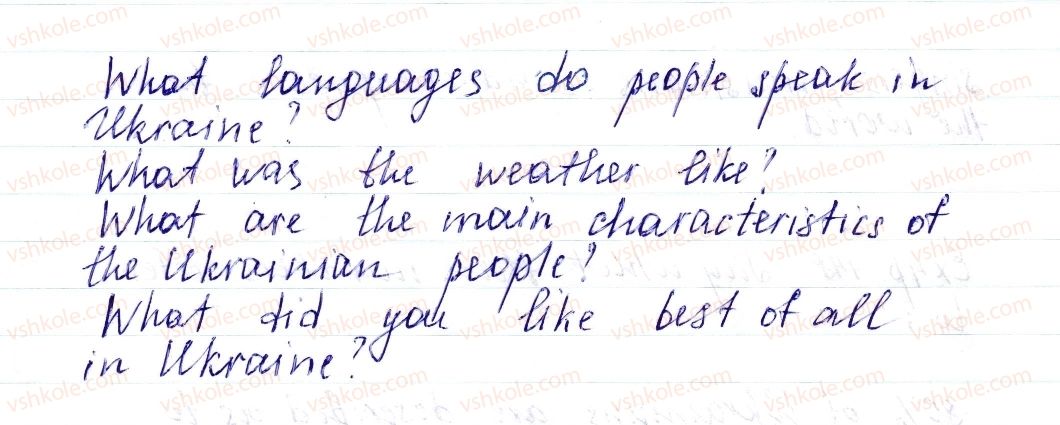 What languages do people speak in
Ukraine?
What was the weather like?
What are the main characteristics of
the Ukrainian people?
What did you like best of all
in Ukraine?